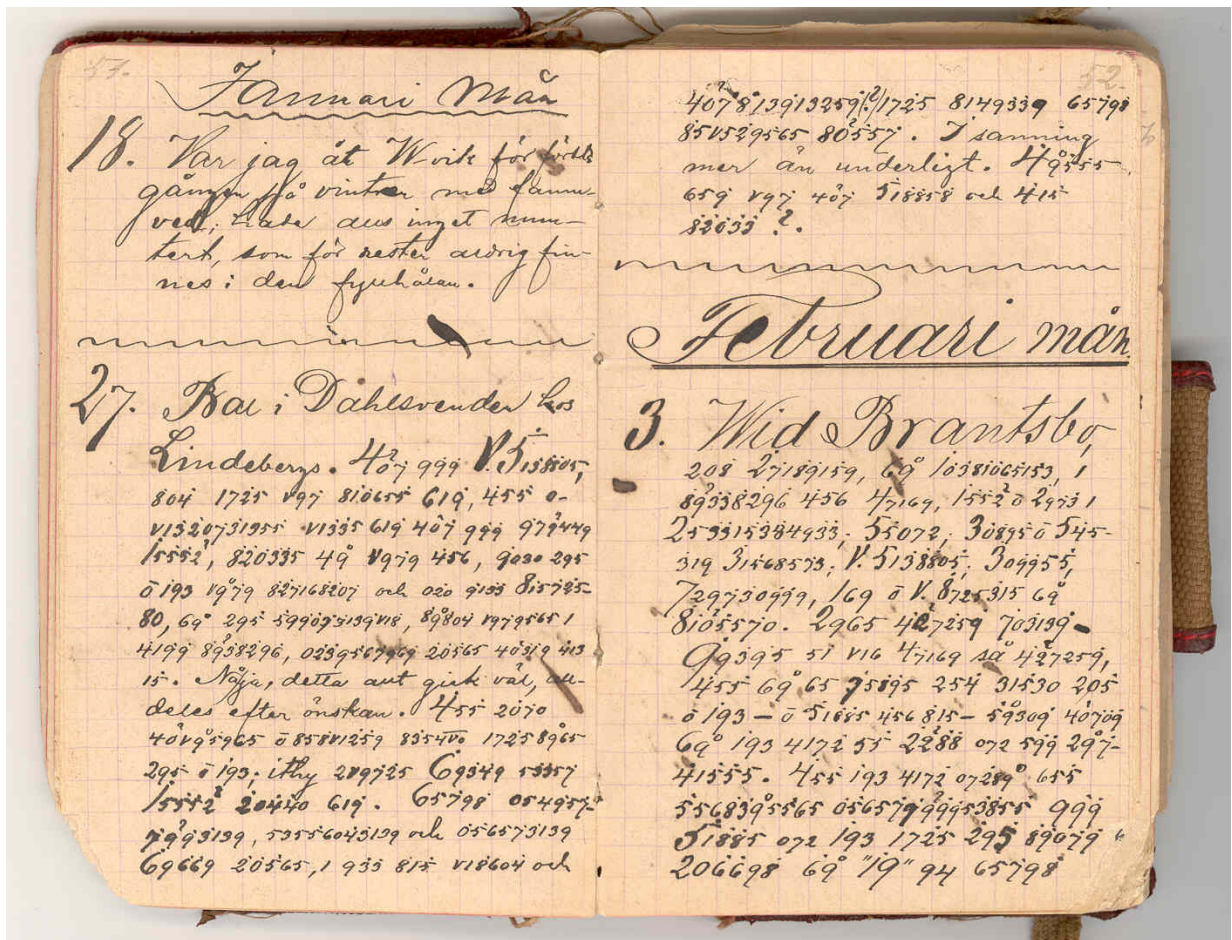 51.
Januari mån
18. Var jag åt Wvik för första
gången på vintren med famn-
ved, hade dus inget num-
mert, som för resten aldrig fin-
nes i den fyllhålan.
27. Bal i Dahlsvenden hos
Lindebergs. 407 999 V. 5138805,
804 1725 v97 810655 619, 455 0-
v1320731955 v1335 619 407 999 979449
15552, 820335 49 v979 456, 9030 295
ö 193 v979 827168207 och 020 9133 815725-
80, 69 295 599073139v18, 89804 v979565 1
4199 8938296, 0239567969 20565 40319 413
15. Nåja, detta gick väl, all-
deles efter önskan. 455 2070
40v95965 ö 858v1259 8354vö 1725 8965
295 ö 193; ithy 2v9725 69349 53357
15552 20440 619. 65798 0549573-
7993139, 5355604 3139 och 056573139
69669 20565, 1 933 815 v18604 och
52.
407 813913259(?)1725 8149339 65798
85v529565 80557. I sanning
mer än underligt. 49555-
659 v97 407 518858 och 415
82033 ?.
Februari mån
3. Wid Brantsbo,
208 27189159, 69 10381065153, 1
89338296 456 47169, 1552 ö 29731
2533315384933; 55072, 308950 545-
319 31568573; V. 5138805; 309955,
729730999, 169 ö V. 8725315 69
8105570. 2965 427259 703139-
99395 51 v16 47169 så 427259,
455 69 65 75895 254 31530 205
ö 193 - ö 51885 456 815 - 59309 40709
69 193 4172 55 2288 072 599 297-
41555. 455 193 4172 07289 655
5568395565 056579999953855 999
51885 072 193 1725 295 89079
206698 69 "19" 94 65798